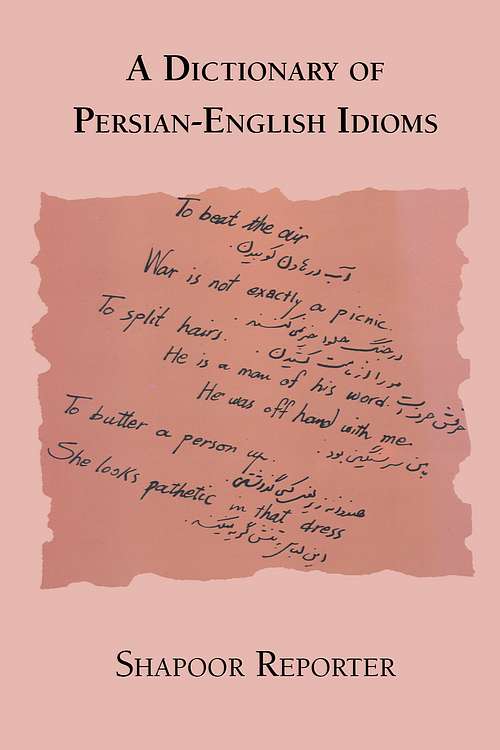 A Dictionary of
Persian-English Idioms
To beat the air
آب در هاون کوبیدن.
War is not exactly a picnic.
در جنگ حلوا خیر نمی‌کنند.
To split hairs.
مو را از ماست کشیدن.
He is a man of his word.
حرفش حرف است.
He was off hand with me
با من سرسنگین بود.
To butter a person up.
هندوانه زیر بغل کسی گذاشتن
She looks pathetic in that dress
این لباس به تنش گریه میکند.
Shapoor Reporter